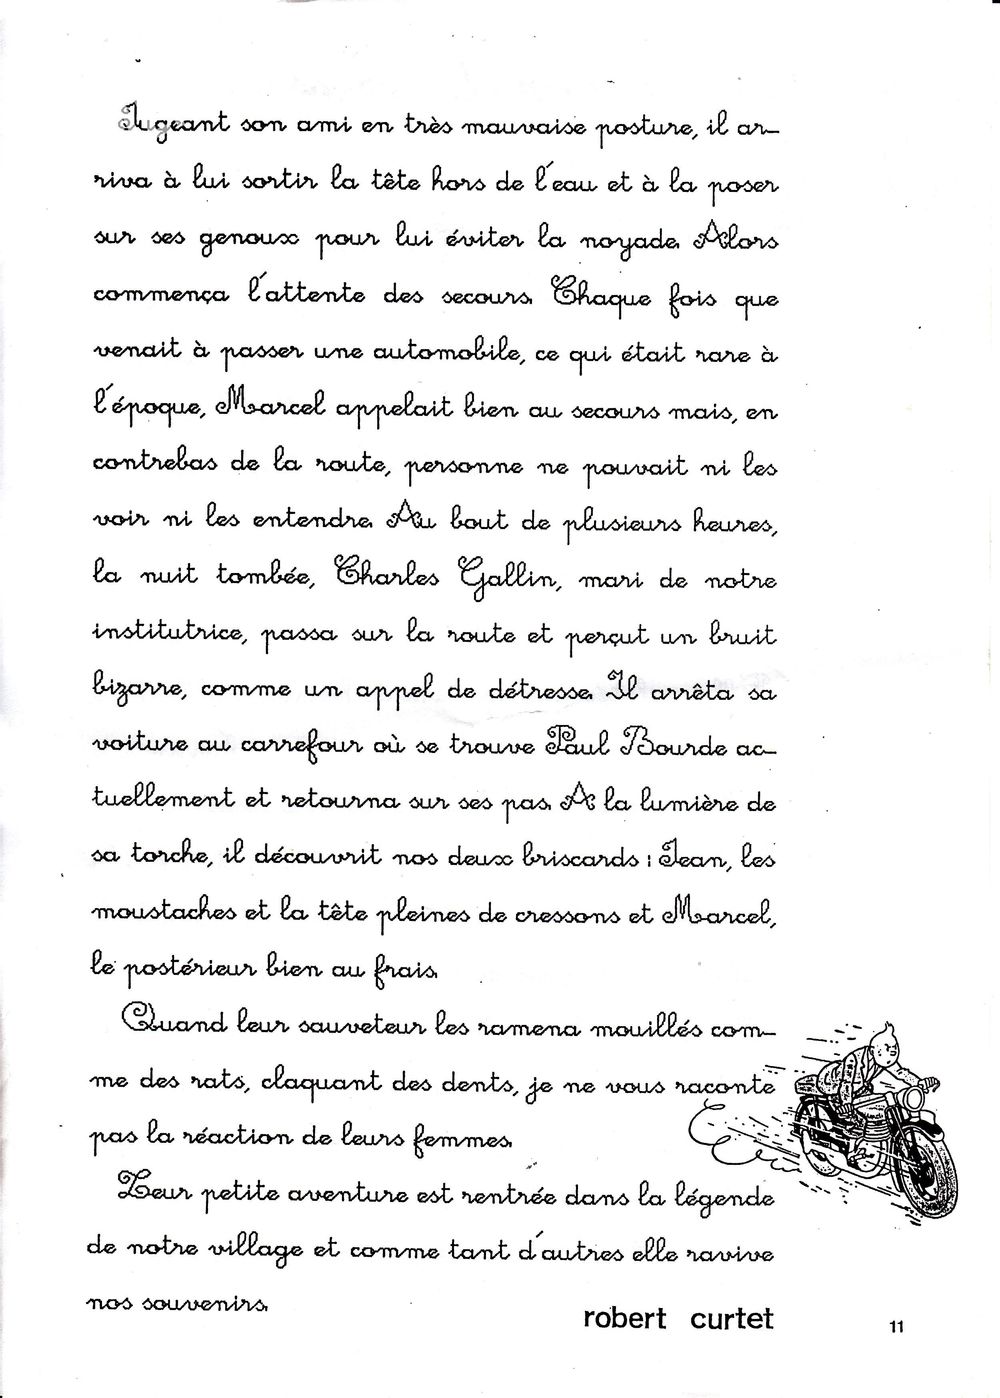 Jugeant son ami en très mauvaise posture, il ar-
riva à lui sortir la tête hors de l'eau et à la poser
sur ses genoux pour lui éviter la noyade. Alors
commença l'attente des secours. Chaque fois que
venait à passer une automobile, ce qui était rare à
l'époque, Marcel appelait bien au secours mais, en
contrebas de la route, personne ne pouvait ni les
voir ni les entendre. Au bout de plusieurs heures,
la nuit tombée, Charles Gallin, mari de notre
institutrice, passa sur la route et perçut un bruit
bizarre, comme un appel de détresse. Il arrêta sa
voiture au carrefour où se trouve Paul Bourde ac-
tuellement et retourna sur ses pas. A la lumière de
sa torche, il découvrit nos deux briscards : Jean, les
moustaches et la tête pleines de cressons et Marcel,
le postérieur bien au frais.
Quand leur sauveteur les ramena mouillés com-
me des rats, claquant des dents, je ne vous raconte
pas la réaction de leurs femmes.
Leur petite aventure est rentrée dans la légende
de notre village et comme tant d'autres elle ravive
nos souvenirs.
robert curtet
11